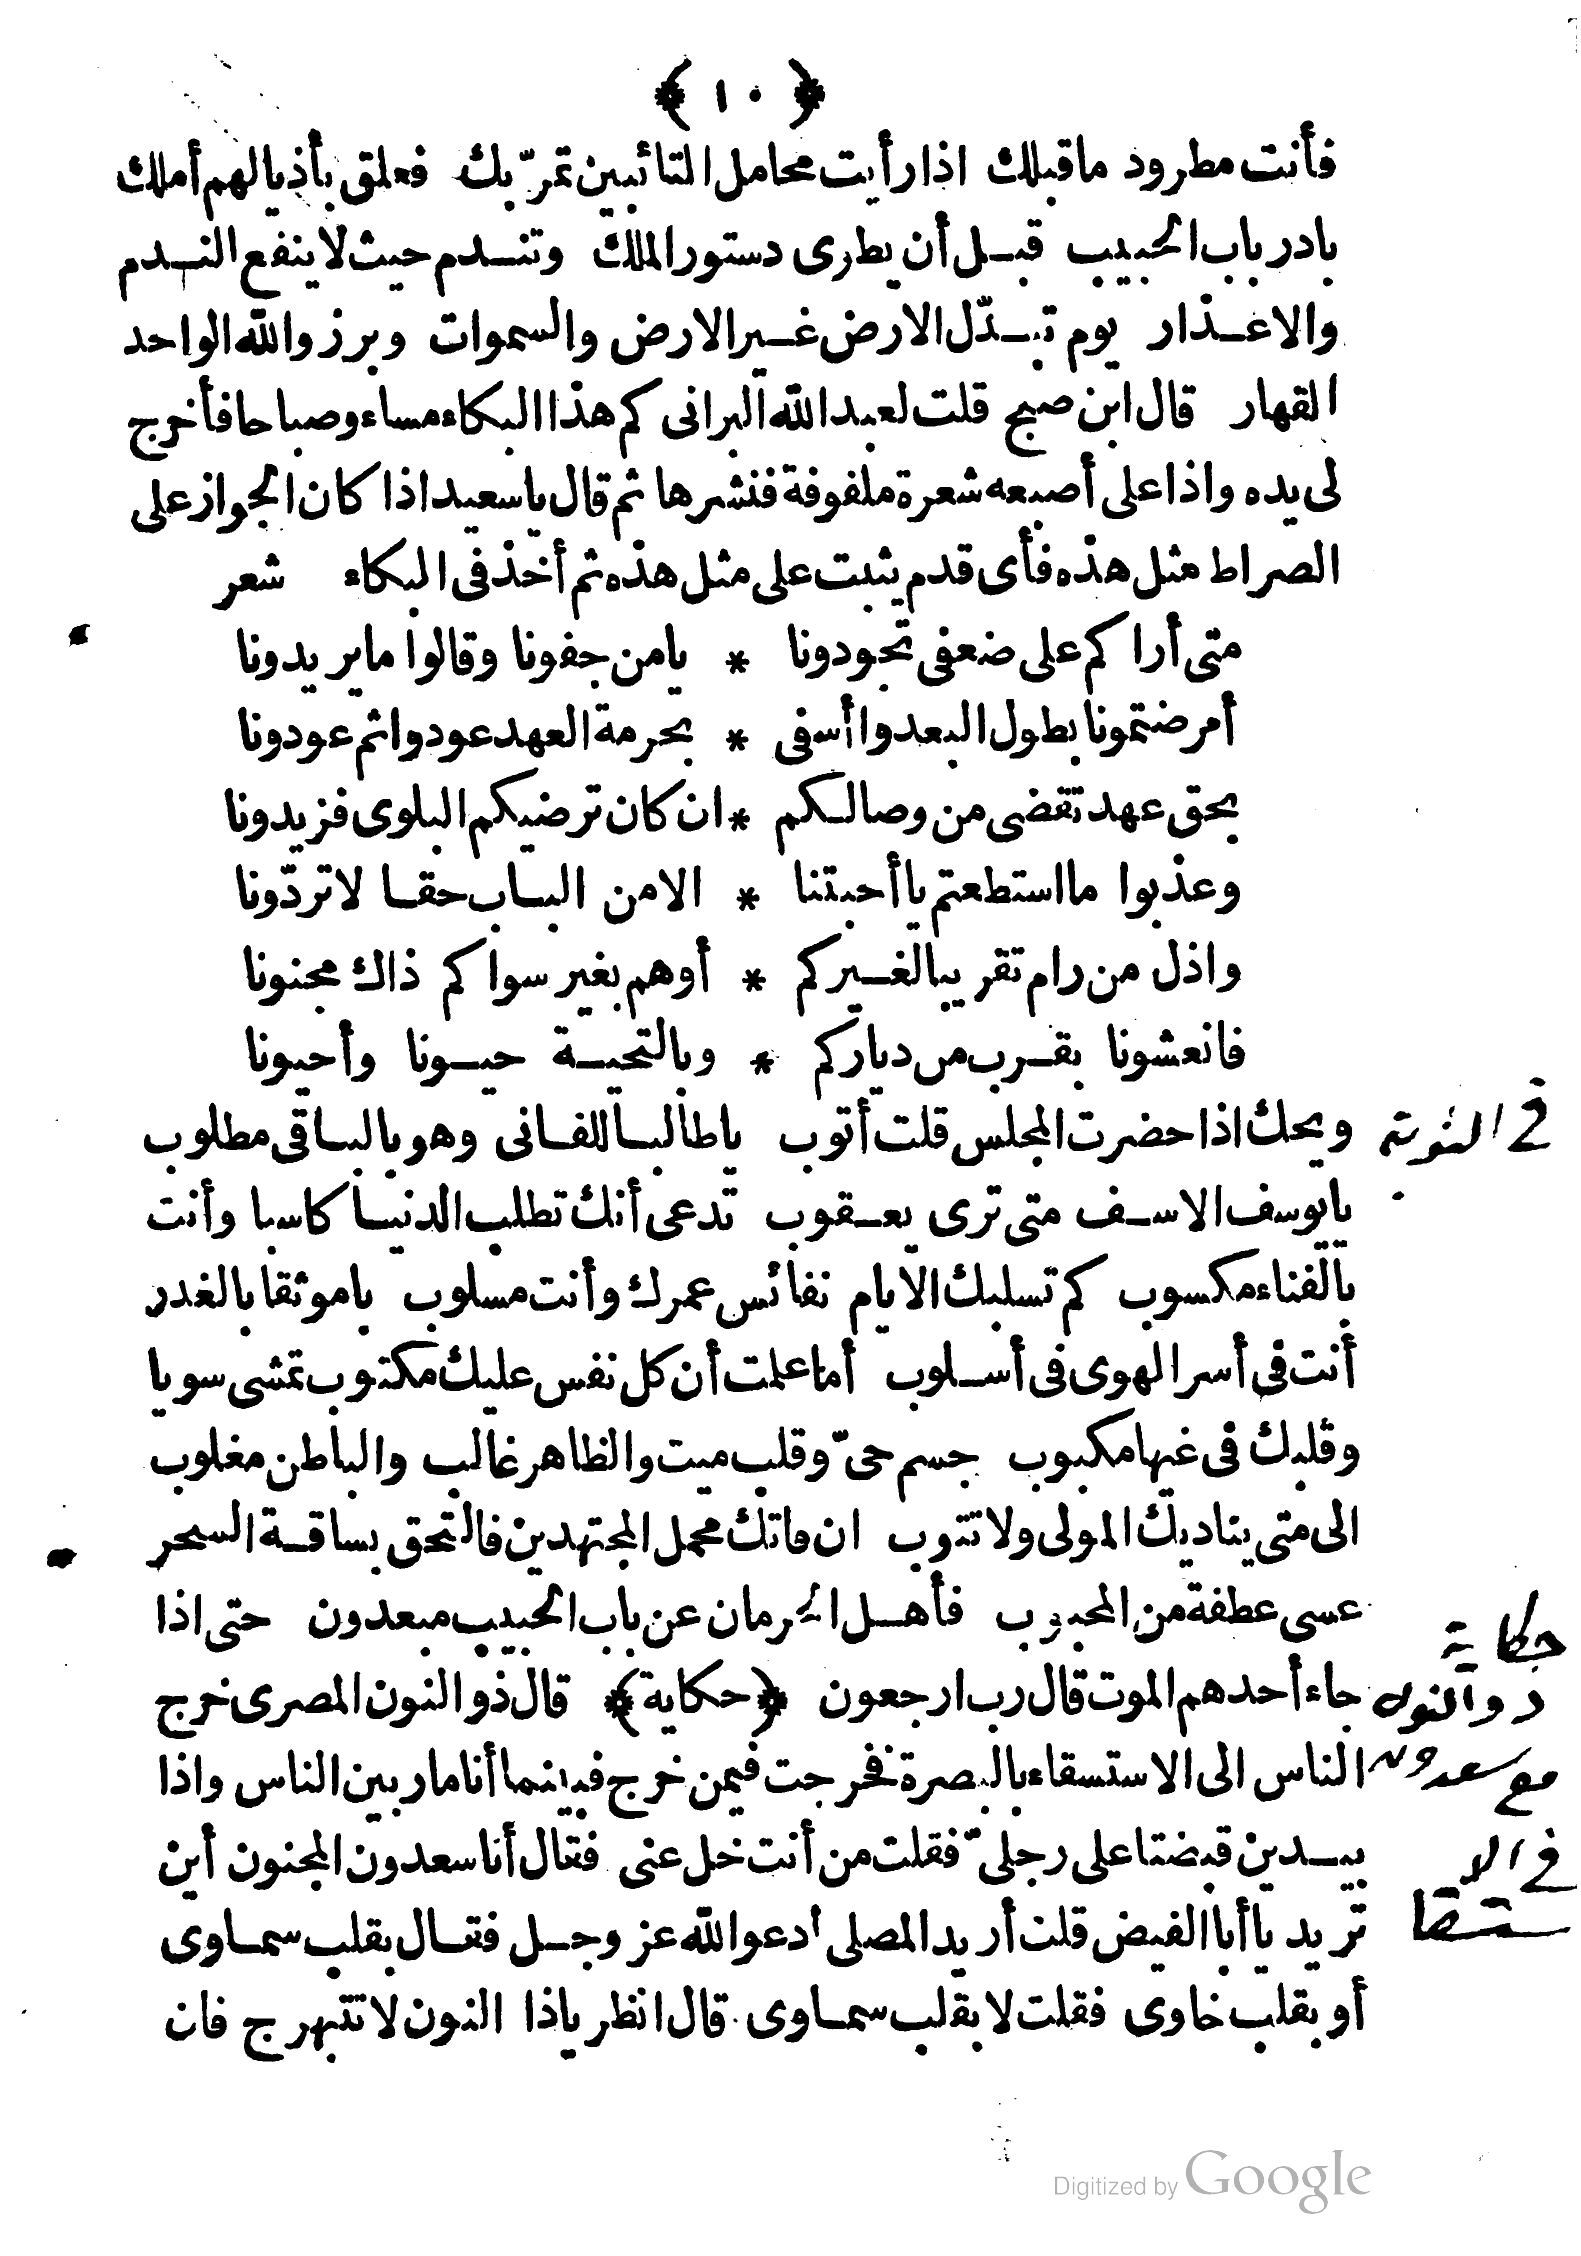 ﴿ ١٠ ﴾
فأنت مطرود ماقبلك اذا رأيت محامل التائبين تمرّ بك فعلق بأذيالهم أملك
بادر باب الحبيب قبل أن يطرى دستور الملك وتندم حيث لا ينفع الندم
والاعذار يوم تبدّل الارض غير الارض والسموات وبرزوا لله الواحد
القهار قال ابن صبح قلت لعبد الله البرانى كم هذا البكاء مساء وصباحا فأخرج
لى يده واذا على أصبعه شعرة ملفوفة فنشرها ثم قال يا سعيد اذا كان الجواز على
الصراط مثل هذه فأى قدم يثبت على مثل هذه ثم أخذ فى البكاء شعر
متى أراكم على ضعفى تجودونا * يا من جفونا وقالوا ما يريدونا
أمرضتمونا بطول البعد واأسفى * بحرمة العهد عودوا ثم عودونا
بحق عهد تقضى من وصالكم * ان كان ترضيكم البلوى فزيدونا
وعذبوا ما استطعتم يا أحبتنا * الا من الباب حقا لا تردّونا
واذل من رام تقريبا لغيركم * أو هم بغير سواكم ذاك مجنونا
فانعشونا بقرب من دياركم * وبالتحية حيونا وأحيونا
ويحك اذا حضرت المجلس قلت أتوب يا طالبا للفانى وهو بالباقى مطلوب
يا يوسف الاسف متى ترى يعقوب تدعى أنك تطلب الدنيا كاسبا وأنت
بالفناء مكسوب كم تسلبك الايام نفائس عمرك وأنت مسلوب ياموثقا بالغدر
أنت فى أسر الهوى فى أسلوب أما علمت أن كل نفس عليك مكتوب تمشى سويا
وقلبك فى غيها مكبوب جسم حىّ وقلب ميت والظاهر غالب والباطن مغلوب
الى متى يناديك المولى ولا تتوب ان فاتك محمل المجتهدين فالتحق بساقة السحر
عسى عطفة من المحبوب فأهل الحرمان عن باب الحبيب مبعدون حتى اذا
جاء أحدهم الموت قال رب ارجعون ﴿حكاية﴾ قال ذو النون المصرى خرج
الناس الى الاستسقاء بالبصرة فخرجت فيمن خرج فبينما أنا مار بين الناس واذا
بيدين قبضتا على رجلىّ فقلت من أنت خل عنى فقال أنا سعدون المجنون أين
تريد يا أبا الفيض قلت أريد المصلى أدعو الله عز وجل فقال بقلب سماوى
أو بقلب خاوى فقلت لا بقلب سماوى قال انظر ياذا النون لا تتبهرج فان
في التوبة
حكاية
ذو النون
مع سعدون
في الا
ستسقا
Digitized by Google